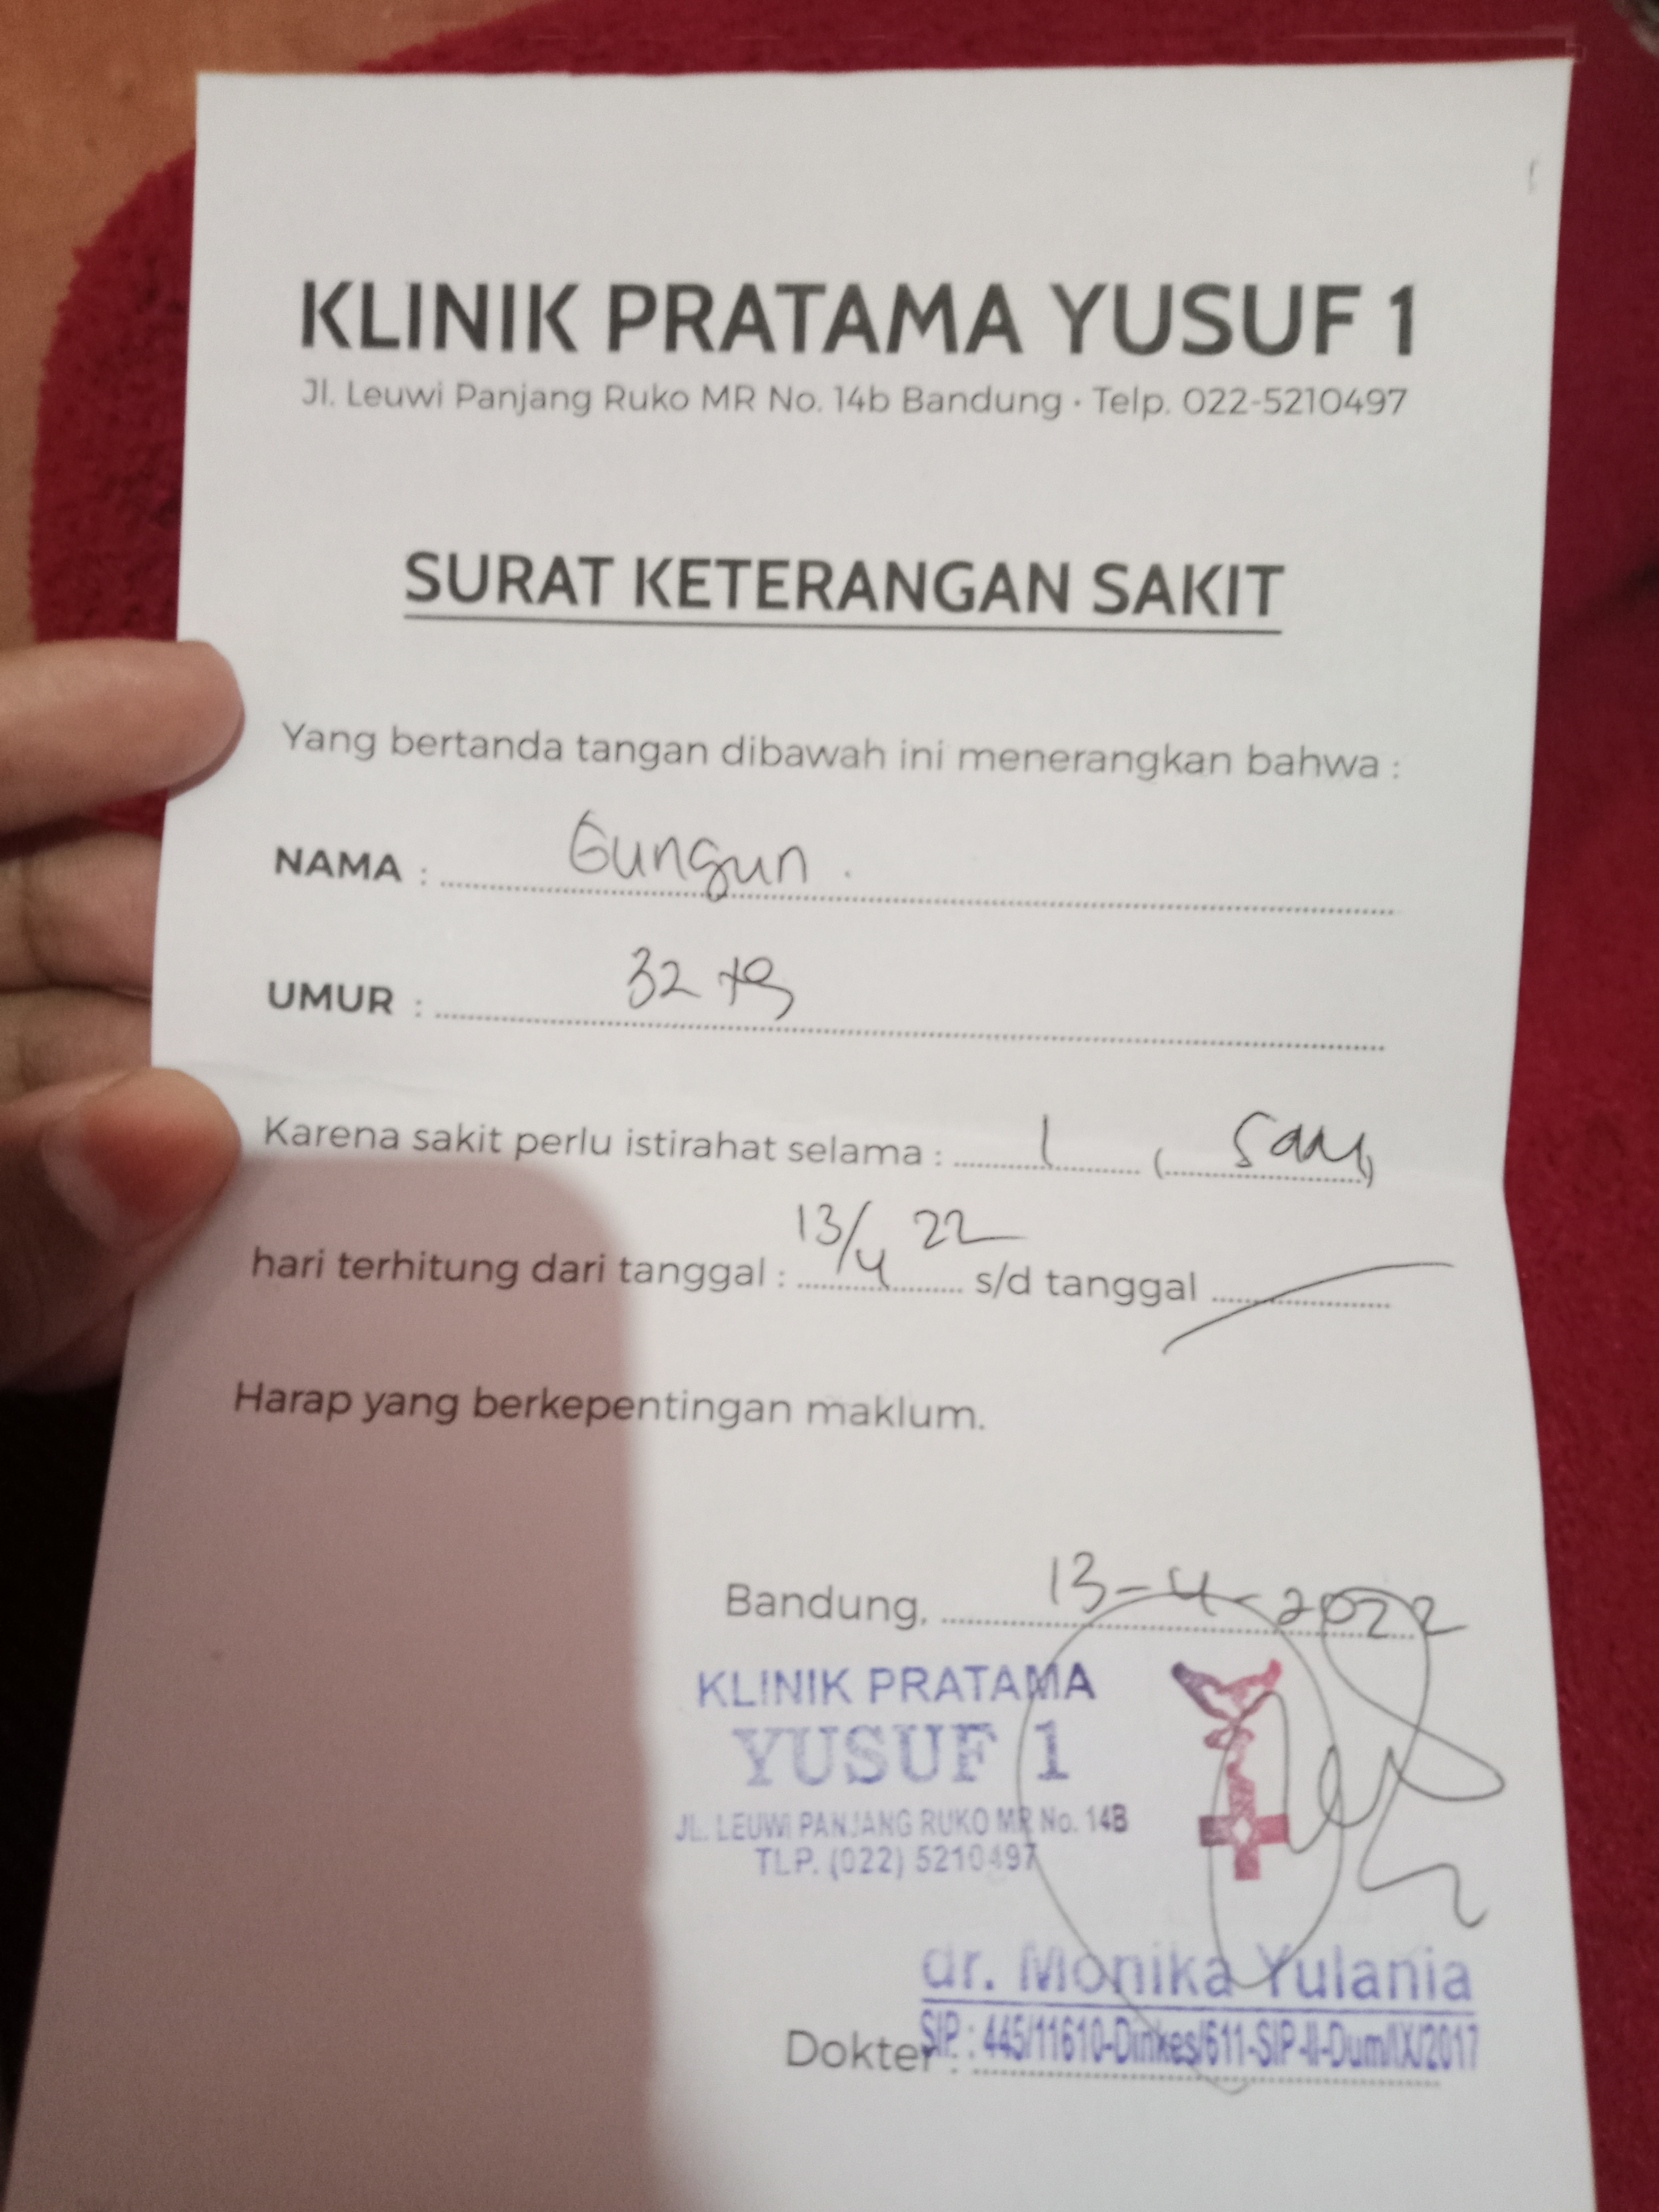 KLINIK PRATAMA YUSUF 1
Jl. Leuwi Panjang Ruko MR No. 14b Bandung • Telp. 022-5210497
SURAT KETERANGAN SAKIT
Yang bertanda tangan dibawah ini menerangkan bahwa :
NAMA : Gungun.
UMUR : 32
Karena sakit perlu istirahat selama : 1 ( Satu )
hari terhitung dari tanggal : 13/4 22 s/d tanggal
Harap yang berkepentingan maklum.
Bandung, 13-4-2022
KLINIK PRATAMA
YUSUF 1
JL. LEUWI PANJANG RUKO MR No. 14B
TLP. (022) 5210497
dr. Monika Yulania
SIP. : 445/11610-Dinkes/611-SIP-II-Dum/IX/2017
Dokter :